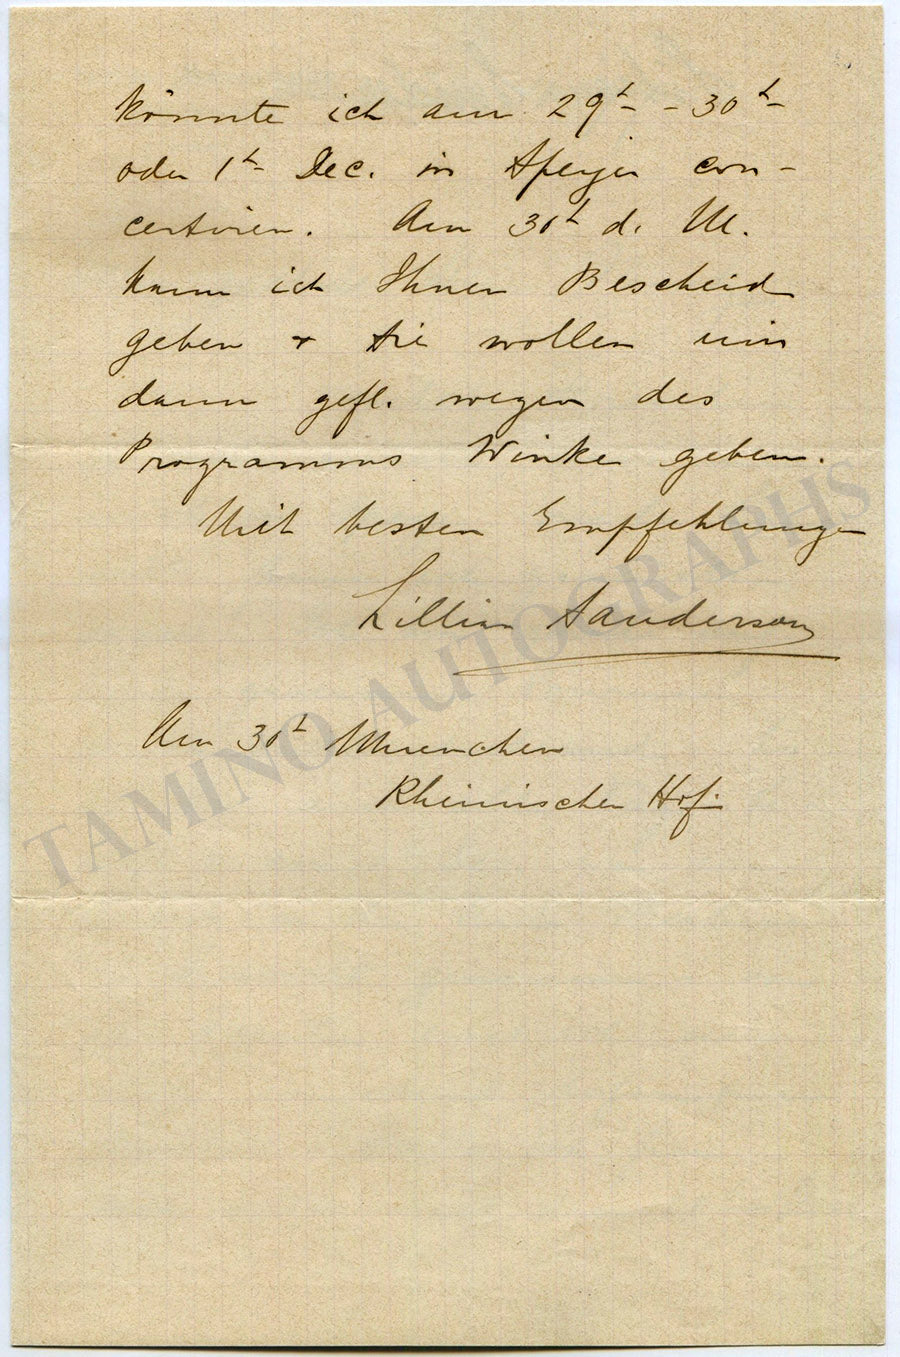 könnte ich am 29t – 30t
oder 1t Dec. in Speyer con-
certiren. Am 30t d. M.
kann ich Ihnen Bescheid
geben + Sie wollen mir
dann gefl. wegen des
Programms Winke geben.
Mit besten Empfehlungen
Lillian Sanderson
Am 30t Muenchen
Rheinischer Hof.
TAMINO AUTOGRAPHS